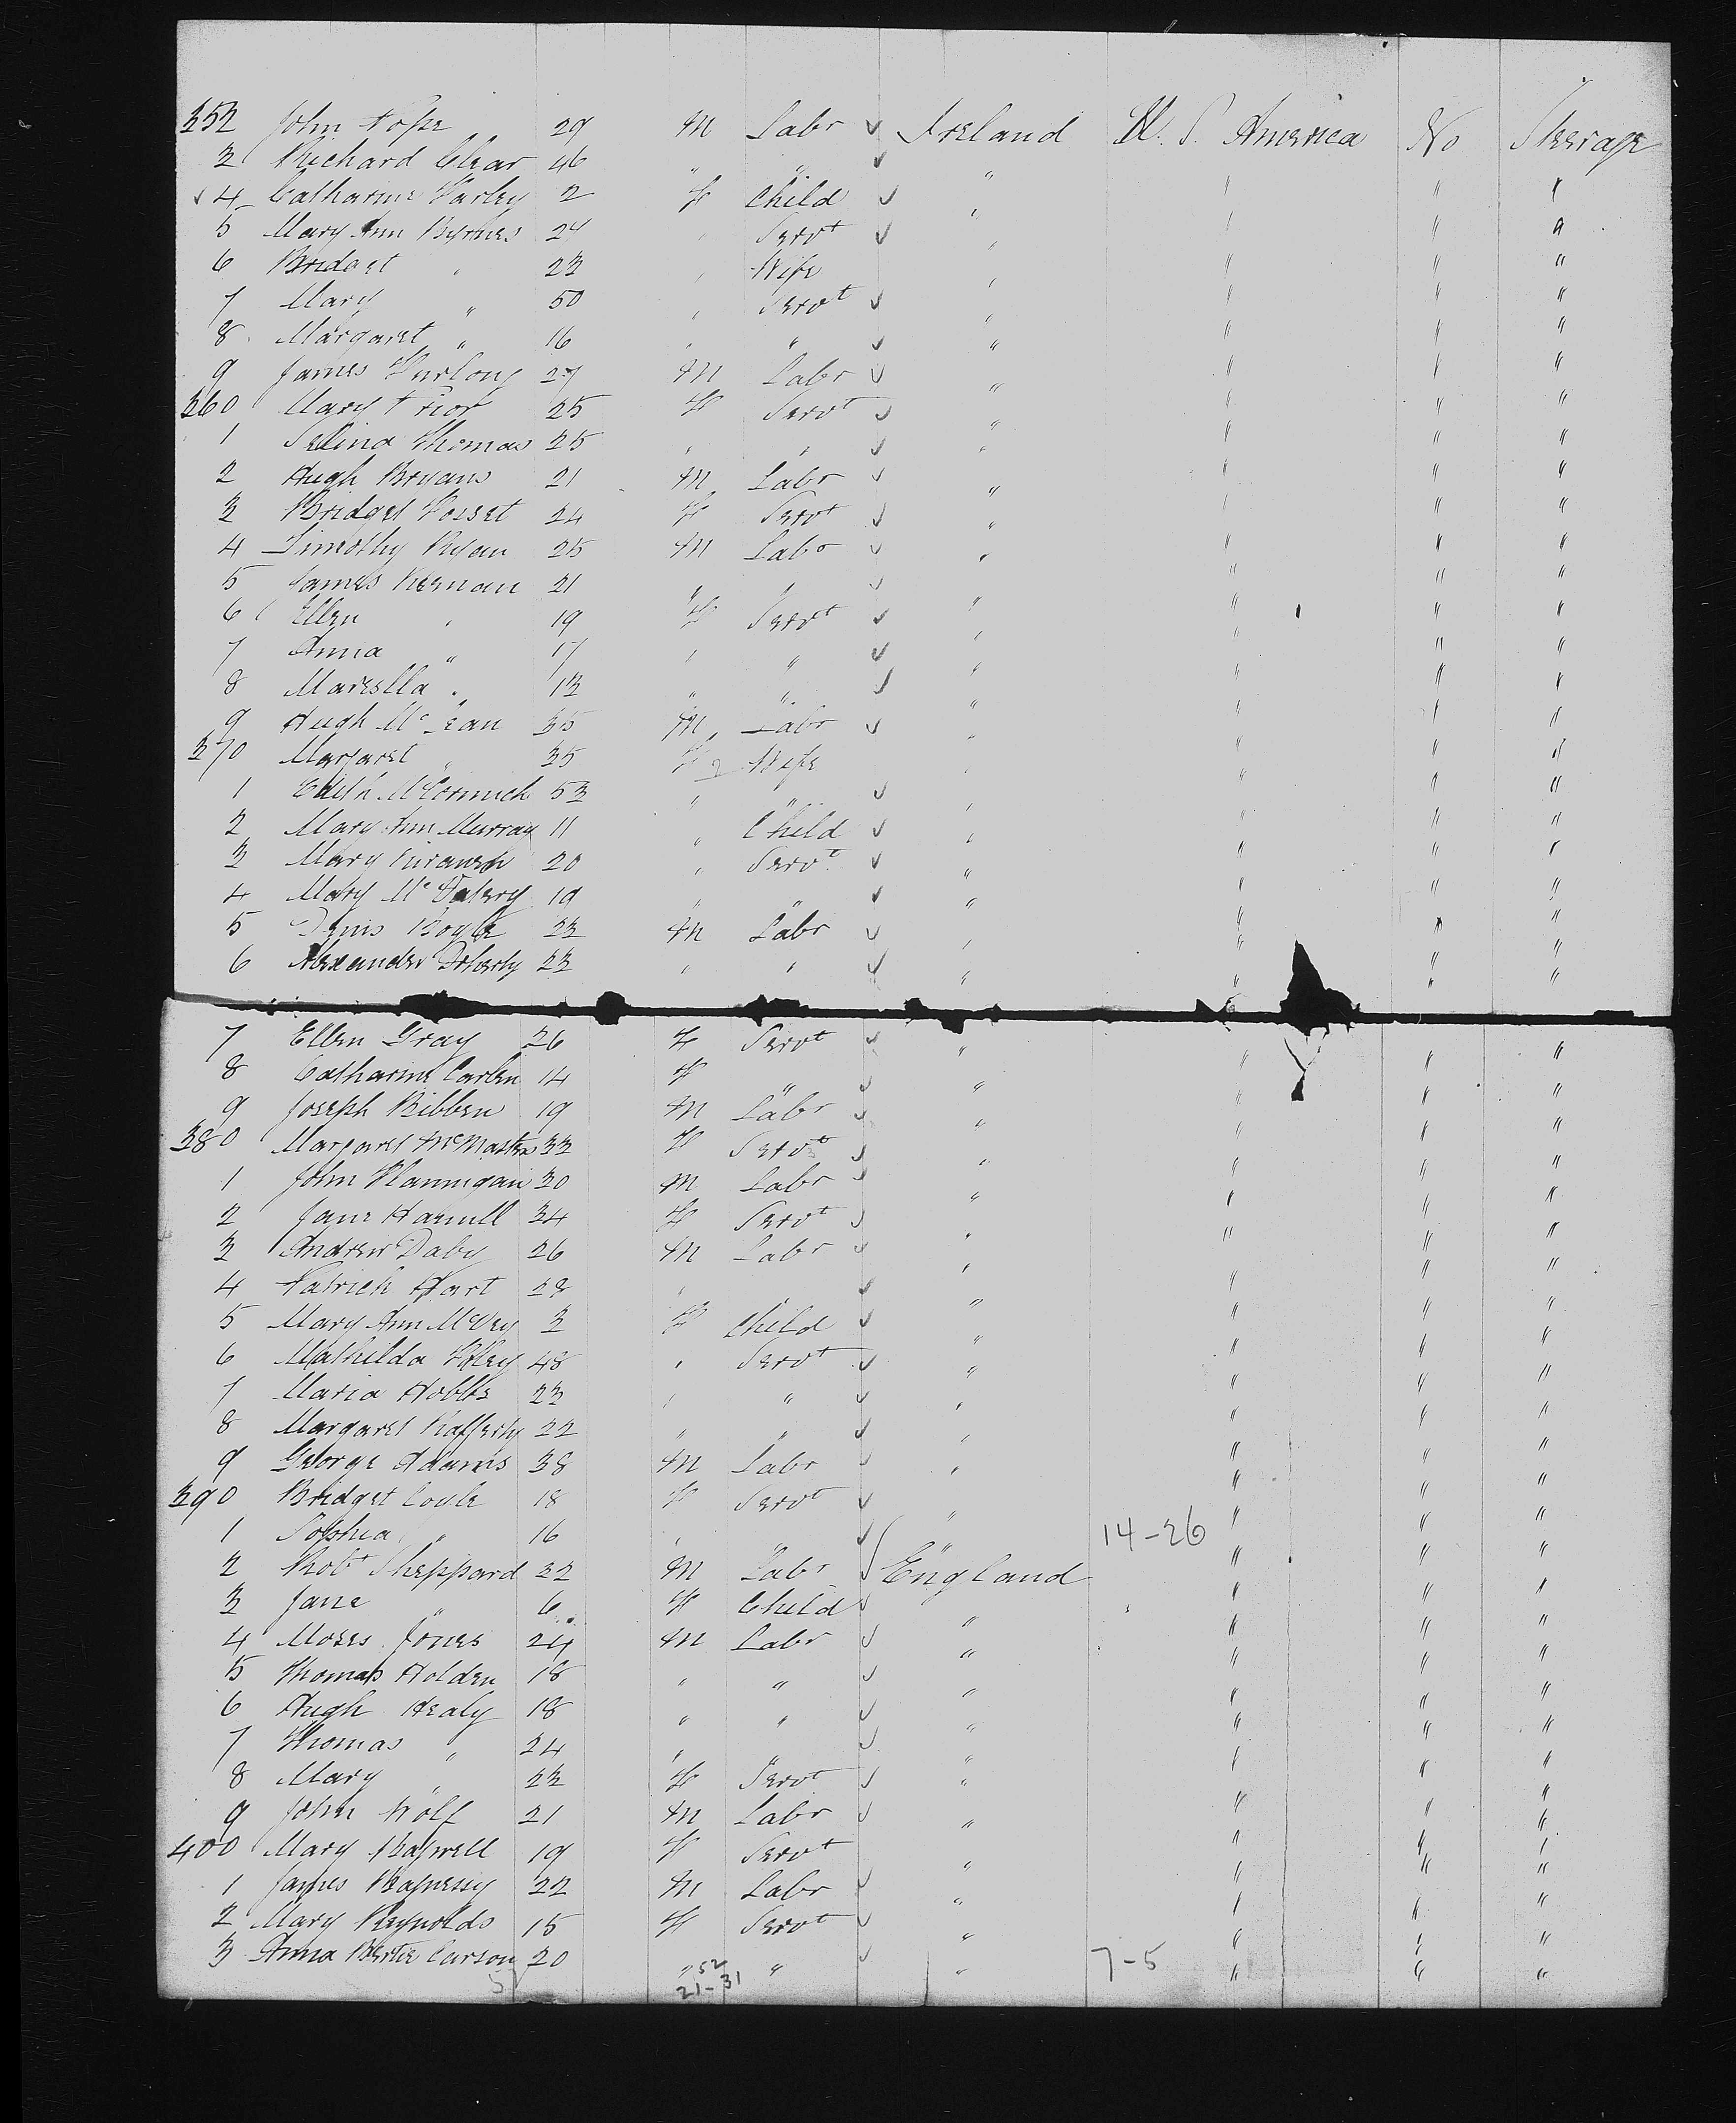 352 John Pope 29 M Labr ✓ Ireland U. S. America No Steerage
3 Richard Clear 46 " " ✓ " " "
✓ 4 Catharine Farley 2 F Child ✓ " " " "
5 Mary Ann Byrnes 24 " Servt ✓ " " " "
6 Bridget " 23 " Wife " " " "
7 Mary " 50 " Servt ✓ " " " "
8 Margaret " 16 " " ✓ " " " "
9 James Furlong 27 M Labr ✓ " " " "
360 Mary Prior 25 F Servt ✓ " " " "
1 Selina Thomas 25 " " ✓ " " " "
2 Hugh Bryans 21 M Labr ✓ " " " "
3 Bridget 24 F Servt ✓ " " " "
4 Timothy Ryan 25 M Labr ✓ " " " "
5 James Kernan 21 " " ✓ " " " "
6 Ellen " 19 F Servt ✓ " " " "
7 Anna " 17 " " ✓ " " " "
8 Mareslla " 13 " " ✓ " " " "
9 Hugh 35 M Labr ✓ " " " "
370 Margaret " 35 F Wife " " " "
1 Edith McCormick 53 " " ✓ " " " "
2 Mary Ann Murray 11 " Child ✓ " " " "
3 Mary 20 " Servt ✓ " " " "
4 Mary 19 " " ✓ " " " "
5 Denis Boyle 23 M Labr ✓ " " " "
6 Alexander Doherty 23 " " ✓ " " " "
7 Ellen Gray 26 F Servt ✓ " " " "
8 Catharine Carlen 14 F " ✓ " " " "
9 Joseph Bibben 19 M Labr ✓ " " " "
380 Margaret McMasters 33 F Servt ✓ " " " "
1 John Flannigan 30 M Labr ✓ " " " "
2 Jane Hamill 34 F Servt ✓ " " " "
3 Andrew Daby 26 M Labr ✓ " " " "
4 Patrick Hart 28 " " ✓ " " " "
5 Mary Ann McVey 3 F Child ✓ " " " "
6 Mathilda 48 " Servt ✓ " " " "
7 Maria Hobbs 23 " " ✓ " " " "
8 Margaret Rafferty 22 " " ✓ " " " "
9 George Adams 38 M Labr ✓ " " " "
390 Bridget Coyle 18 F Servt ✓ " " " "
1 Sophia " 16 " " ✓ " 14-26 " " "
2 Robt Sheppard 32 M Labr England " " "
3 Jane " 6 F Child ✓ " " " "
4 Moses Jones 24 M Labr ✓ " " " "
5 Thomas Holden 18 " " ✓ " " " "
6 Hugh Healy 18 " " ✓ " " " "
7 Thomas " 24 " " ✓ " " " "
8 Mary " 23 F Servt ✓ " " " "
9 John Wolf 21 M Labr ✓ " " " "
400 Mary 19 F Servt " " " "
1 James 22 M Labr ✓ " " " "
2 Mary Reynolds 15 F Servt ✓ " " " "
3 Anna Bertie Carson 20 " " ✓ " 7-5 " " "
52
21-31